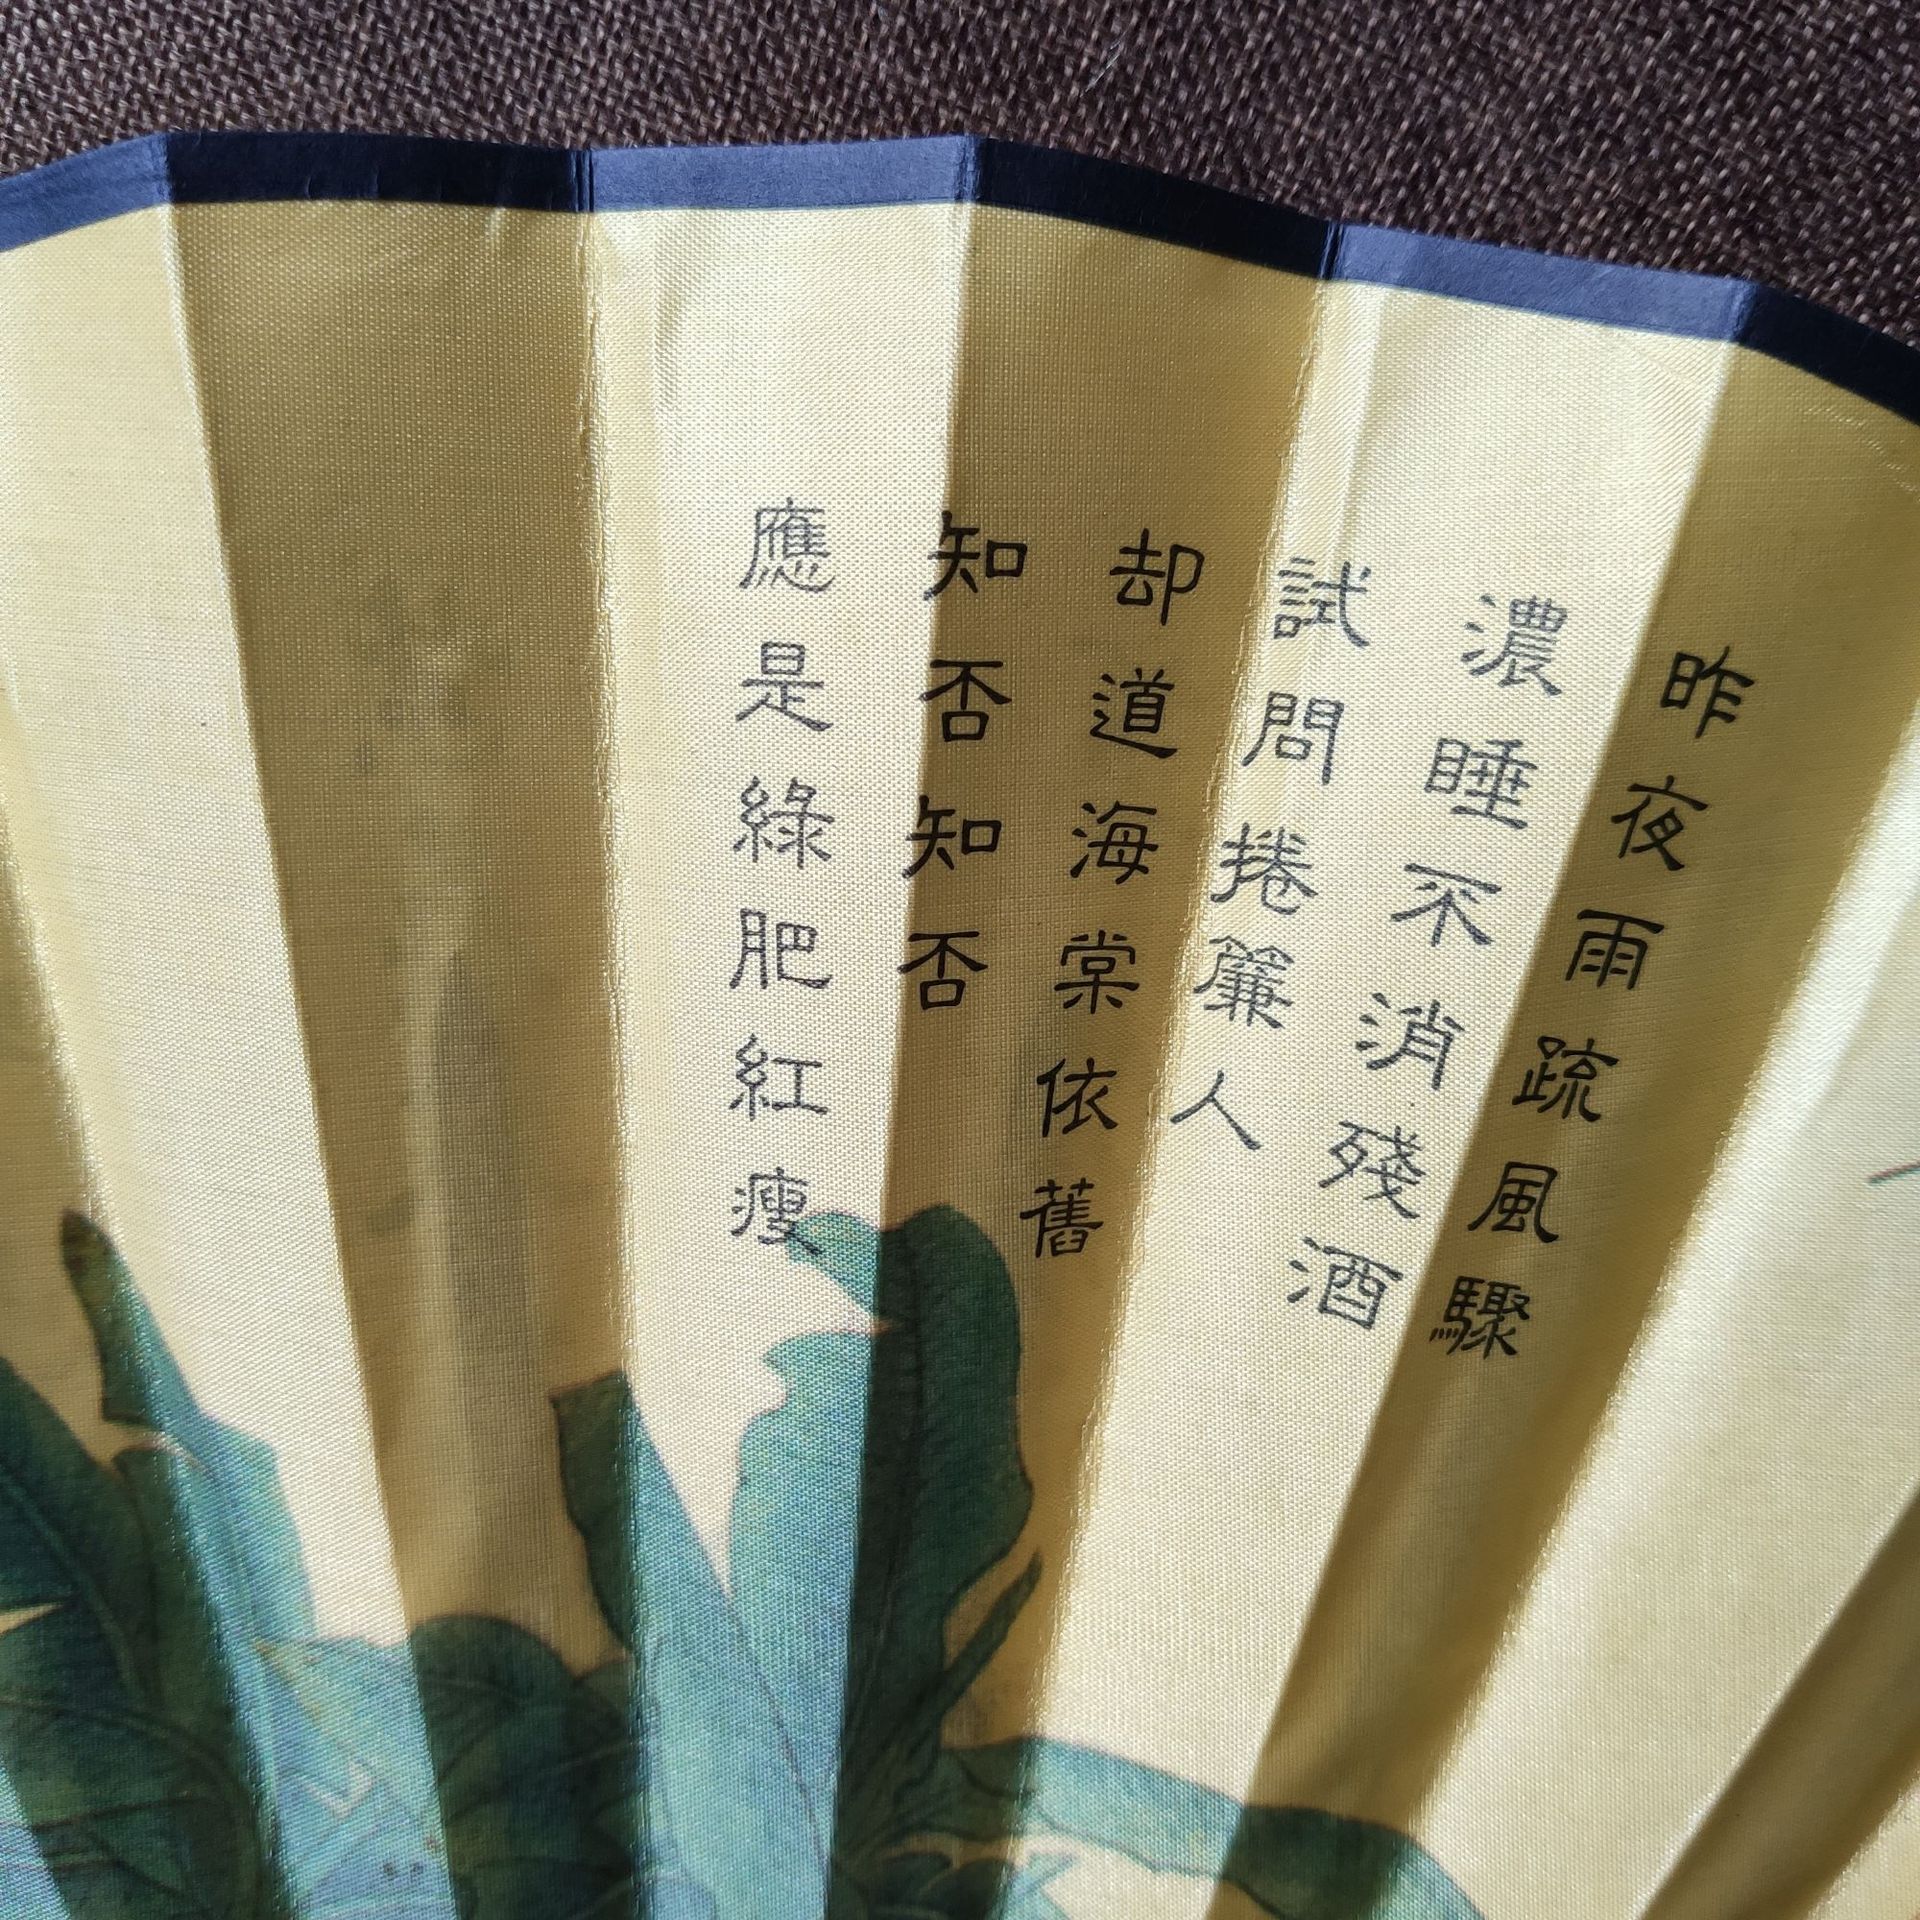 昨夜雨疏風驟
濃睡不消殘酒
試問捲簾人
却道海棠依舊
知否知否
應是綠肥紅瘦